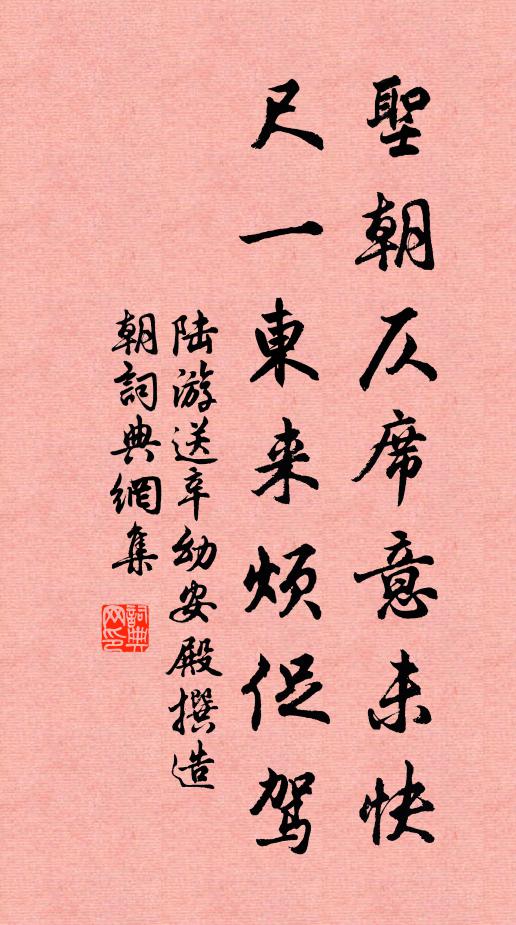 聖朝仄席意未快
尺一東来煩促駕
陆游送辛幼安殿撰造
朝詞典網集
詞典网印